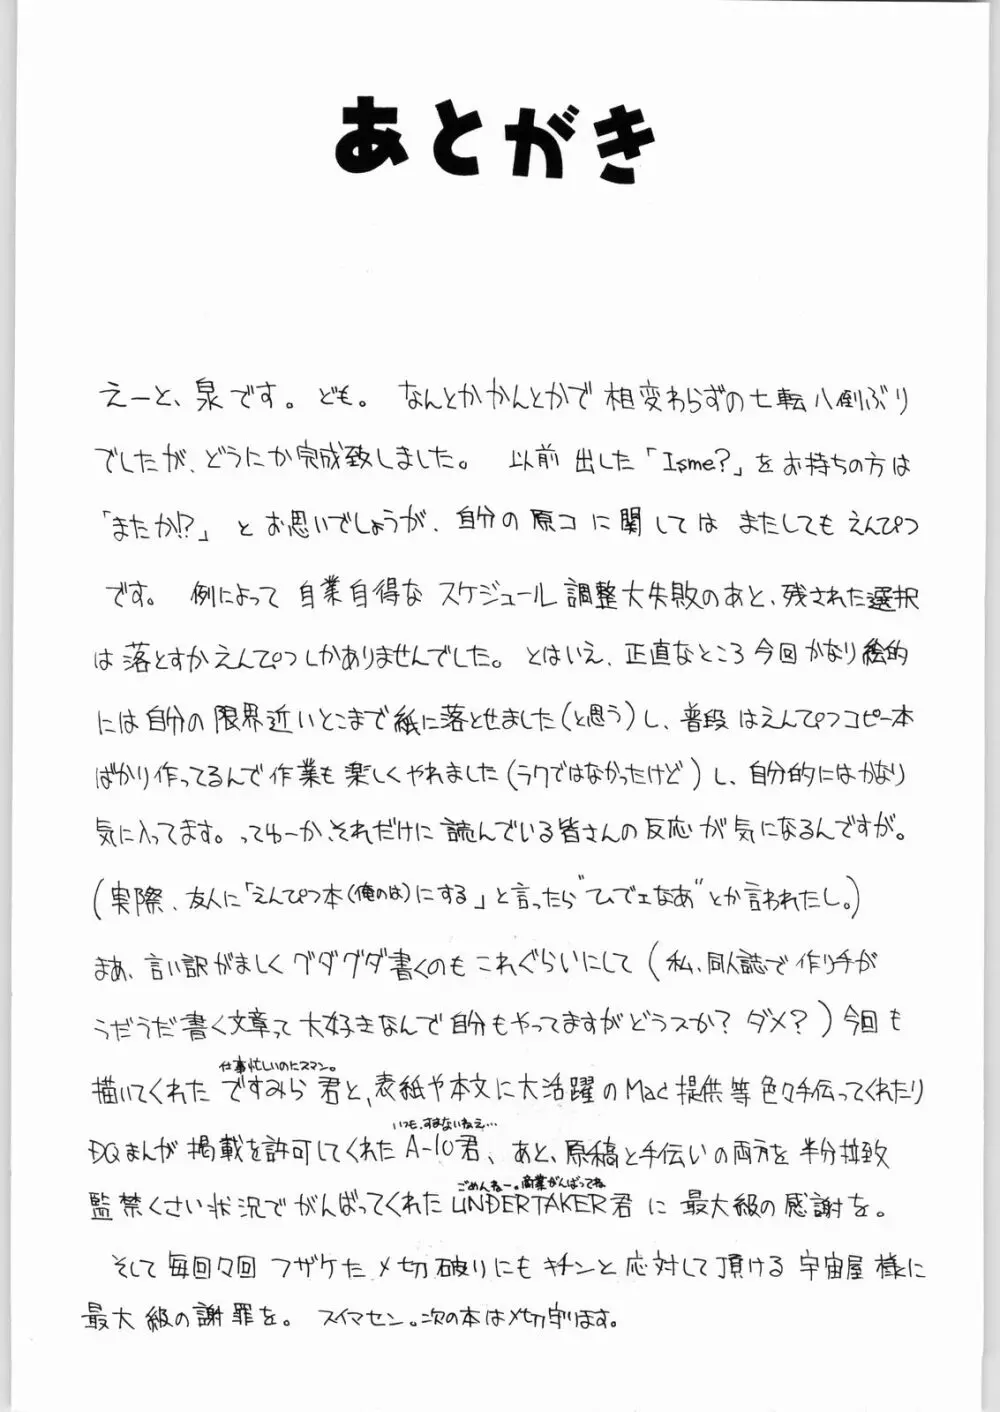 あとがき
えーと、泉です。ども。なんとかかんとかで相変わらずの七転八倒ぶり
でしたが、どうにか完成致しました。以前出した「Isme?」をお持ちの方は
「またか!?」とお思いでしょうが、自分の原コに関してはまたしてもえんぴつ
です。例によって自業自得なスケジュール調整大失敗のあと、残された選択
は落とすかえんぴつしかありませんでした。とはいえ、正直なところ今回かなり絵的
には自分の限界近いとこまで紙に落とせました(と思う)し、普段はえんぴつコピー本
ばかり作ってるんで作業も楽しくやれました(ラクではなかったけど)し、自分的にはかなり
気に入ってます。ってゆーか、それだけに読んでいる皆さんの反応が気になるんですが。
(実際、友人に「えんぴつ本(俺のは)にする」と言ったら"ひでェなあ"とか言われたし。)
まあ、言い訳がましくグダグダ書くのもこれぐらいにして(私、同人誌で作り手が
うだうだ書く文章って大好きなんで自分もやってますがどうスか?ダメ?)今回も
仕事忙しいのにスマン。
描いてくれたですみら君と、表紙や本文に大活躍のMac提供等色々手伝ってくれたり
いつも、すまないねえ…
DQまんが掲載を許可してくれたA-10君、あと、原稿と手伝いの両方を半分拉致
ごめんねー。商業がんばってね
監禁くさい状況でがんばってくれたUNDERTAKER君に最大級の感謝を。
そして毎回々回フザケたメ切破りにもキチンと応対して頂ける宇宙屋様に
最大級の謝罪を。スイマセン。次の本はメ切守ります。